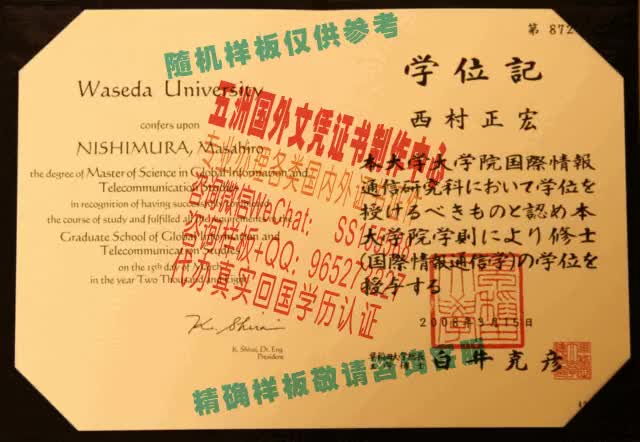 随机样板仅供参考
第 872
学位記
Waseda University
西村正宏
confers upon
NISHIMURA, Masahiro
the degree of Master of Science in Global Information and
Telecommunication Studies
in recognition of having successfully completed
the course of study and fulfilled all the requirements of the
Graduate School of Global Information and
Telecommunication Studies
on the 15th day of March
in the year Two Thousand and Eight
K. Shirai
K. Shirai, Dr. Eng
President
本大学大学院国際情報
通信研究科において学位を
授けるべきものと認め本
大学院学則により修士
(国際情報通信学)の学位を
授与する
2008年3月15日
早稲田大学総長
白井克彦
五洲国外文凭证书制作中心
专业办理各类国内外证书制作
办真实回国学历认证
精确样板敬请咨询客服